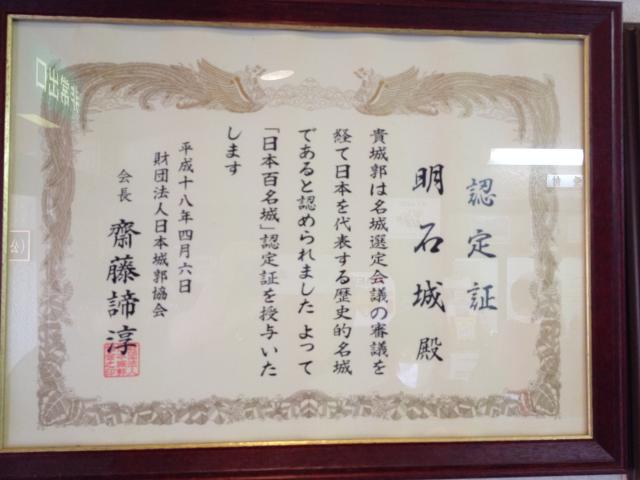 認定証
明石城殿
貴城郭は名城選定会議の審議を
経て日本を代表する歴史的名城
であると認められました よって
「日本百名城」認定証を授与いた
します
平成十八年四月六日
財団法人日本城郭協会
会長 齋藤諦淳
非常出口